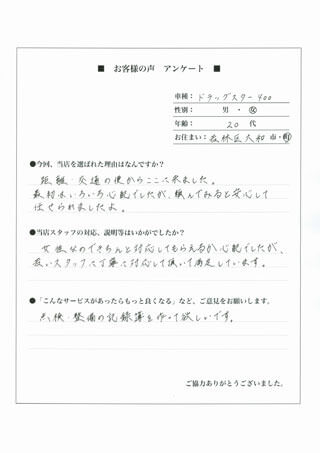 ■ お客様の声 アンケート ■
車種： ドラッグスター400
性別： 男 ・ 女
年齢： 20 代
お住まい： 大和 市・町
●今回、当店を選ばれた理由はなんですか？
距離・交通の便からここに来ました。
最初はいろいろ心配でしたが、頼んでみると安心して
任せられましたよ。
●当店スタッフの対応、説明等はいかがでしたか？
女性なのできちんと対応してもらえるか心配でしたが、
良いスタッフに丁寧に対応して頂いて満足しています。
●「こんなサービスがあったらもっと良くなる」など、ご意見をお願いします。
点検・整備の記録簿を作って欲しいです。
ご協力ありがとうございました。